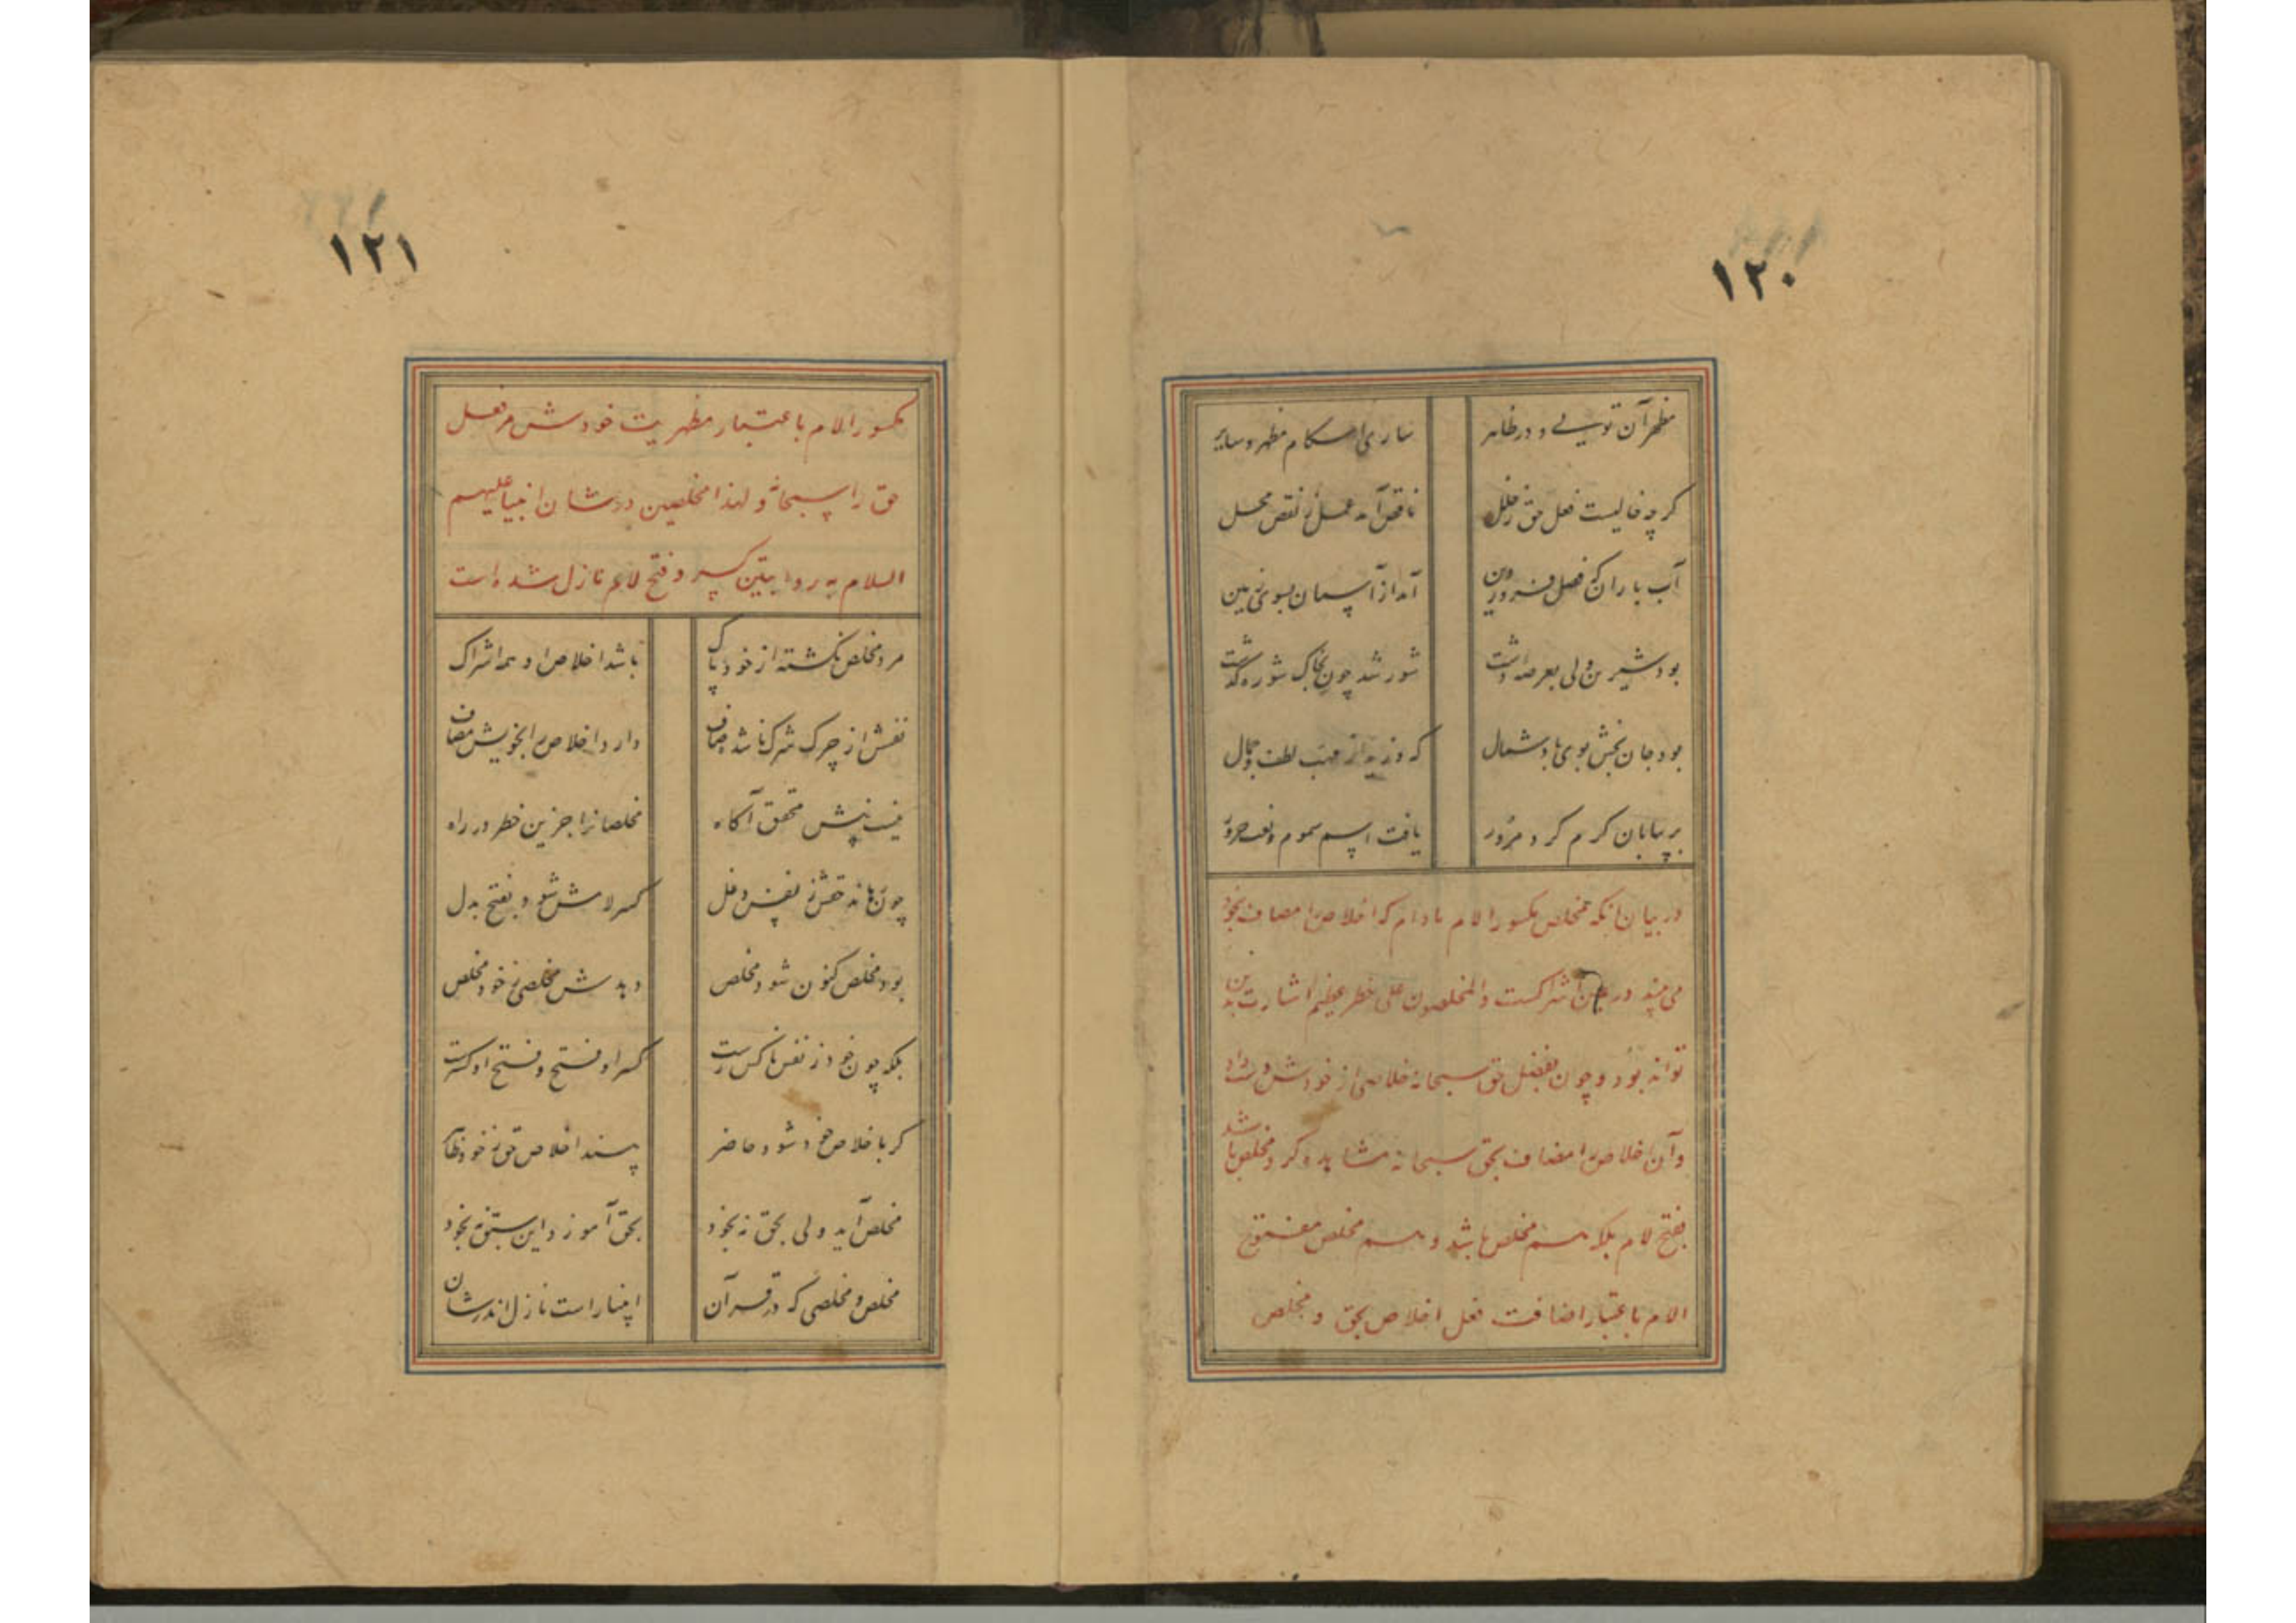 ۱۲۰
مظهر آن تویی و در ظاهر
ساری احکام مظهر و سایر
کرچه خالیست فعل حق ز خلل
ناقص آمد عمل ز نقص محل
آب باران که فصل فروردین
آمد از آسمان بسوی زمین
بود شیرین ولی بعرصه دشت
شور شد چون بخاک شوره گذشت
بود جان بخش بوی باد شمال
که وزید از مهب لطف و جمال
بر بیابان کرم کرد مرور
یافت اسم سموم و نعت حرور
در بیان آنکه مخلص مکسور اللام مادام که اخلاص را مضاف بخود
می بیند در عین اشراکست و المخلصون علی خطر عظیم اشارت بدین
تواند بود و چون بفضل حق سبحانه خلاصی از خودش دست داد
و آن اخلاص را مضاف بحق سبحانه مشاهده کرد مخلص باشد
بفتح لام بلکه هم مخلص باشد و هم مخلص مفتوح
اللام باعتبار اضافت فعل اخلاص بحق و مخلص
۱۲۱
مکسور اللام باعتبار مظهریت خودش مر فعل
حق را سبحانه و لهذا مخلصین در شان انبیا علیهم
السلام به روایتین کسر و فتح لام نازل شده است
مرد مخلص نکشته از خود پاک
باشد اخلاص او همه اشراک
نفسش از چرک شرک ناشده صاف
دارد اخلاص را بخویش مضاف
نیست پیش محقق آکاه
مخلصانرا جز این خطر در راه
چون رهاند حقش ز نفس و دغل
کسر لامش شود بفتح بدل
بود مخلص کنون شود مخلص
دید مخلصی ز خود مخلص
بلکه چون خود ز نفس ناکس رست
کسر او فتح و فتح او کسرست
کر باخلاص خود شود حاضر
بیند اخلاص حق ز خود ظاهر
مخلص آید ولی بحق نه بخود
بحق آموزد این سبق نه بخود
مخلص و مخلصی که در قرآن
انبیا راست نازل اندر شان